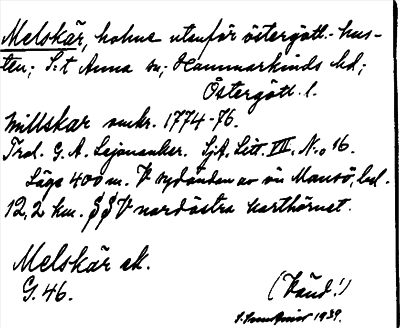 Melskär, holme utanför östergötl. kus-
ten; S:t Anna sn; Hammarkinds hd;
Östergötl. l.
Millskär omkr. 1774-76.
Trol. G. A. Lejonanker. SjA, Litt. III, N:o 16.
Läge 400 m. V sydändan av ön Mansö, bel.
12,2 km. SSV nordöstra karthörnet.
Melskär ek.
G. 46.
(Vänd!)
1939.